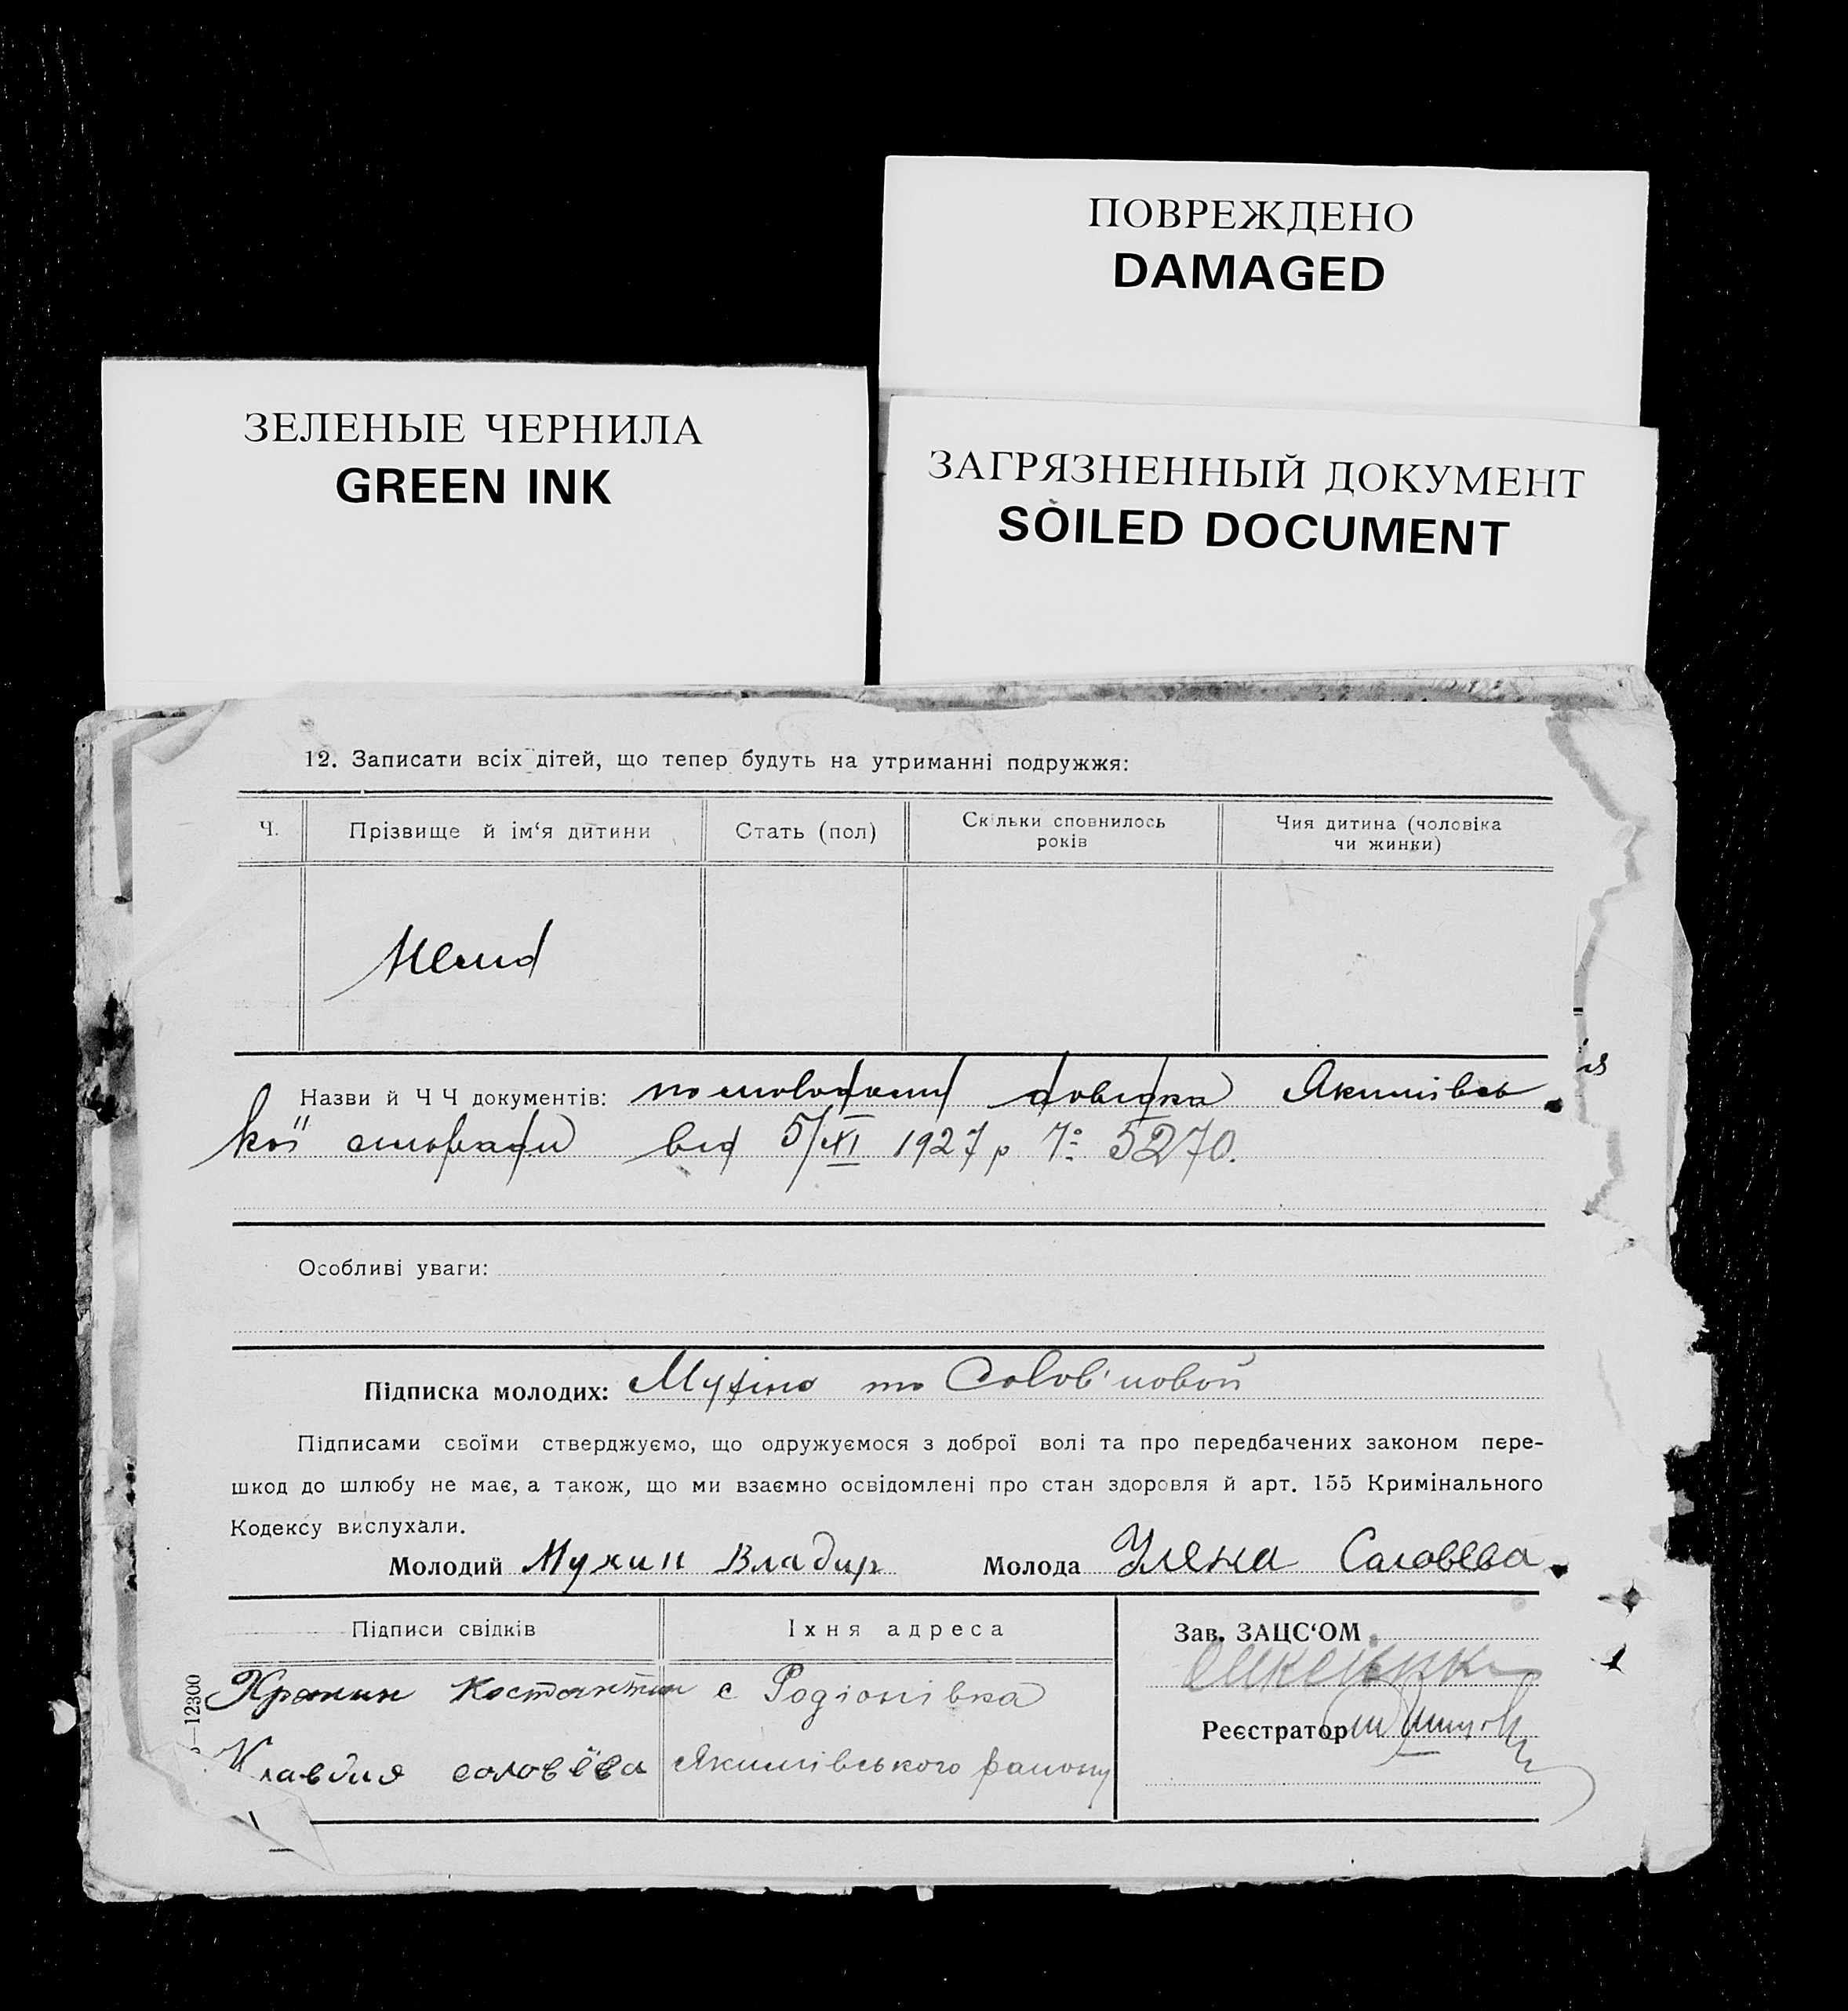 ПОВРЕЖДЕНО
DAMAGED
ЗЕЛЕНЫЕ ЧЕРНИЛА
GREEN INK
ЗАГРЯЗНЕННЫЙ ДОКУМЕНТ
SOILED DOCUMENT
12. Записати всіх дітей, що тепер будуть на утриманні подружжя:
Ч.
Прізвище й ім‘я дитини
Стать (пол)
Скільки сповнилось
років
Чия дитина (чоловіка
чи жинки)
Нема
Назви й Ч Ч документів: довідка Якимівсь
кої сторади від 5/XI 1927 р № 5270.
Особливі уваги:
Підписка молодих: Мухіна та Солов'йовой
Підписами своїми стверджуємо, що одружуємося з доброї волі та про передбачених законом пере-
шкод до шлюбу не має, а також, що ми взаємно освідомлені про стан здоровля й арт. 155 Кримінального
Кодексу вислухали.
Молодий Мухин Владир Молода Улена Саловева
Підписи свідків
Їхня адреса
Зав. ЗАЦС‘ОМ
Костантин с Родіонівка
Реєстратор
Клавдия соловёва Якимівського району
—12300